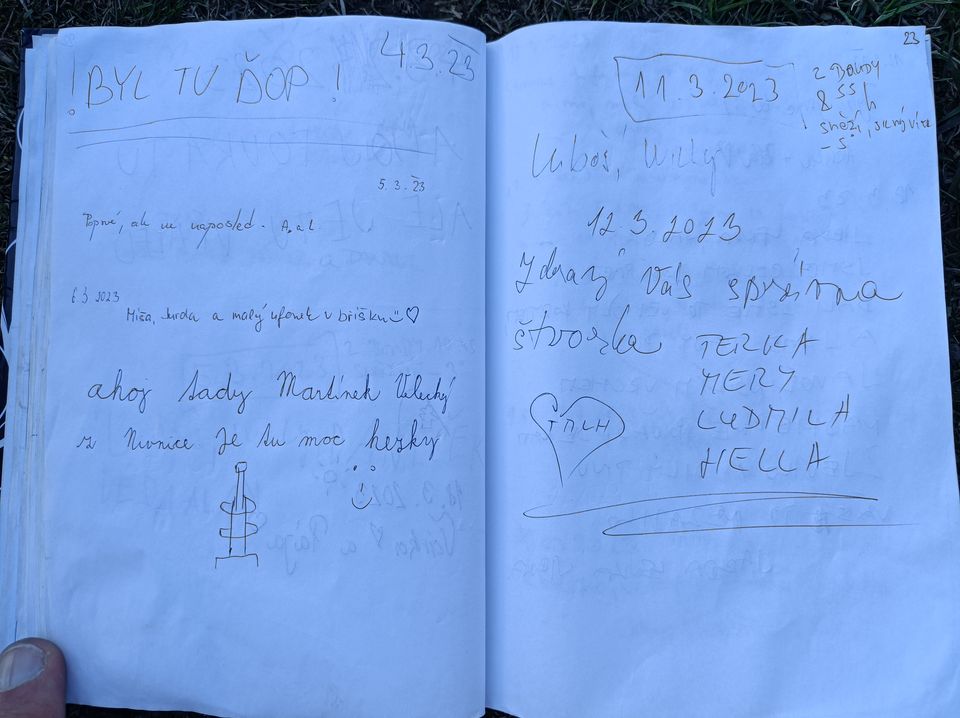 4.3.23
! BYL TU ĎOP !
5.3.23
Poprvé, ale ne naposled. A. a L
6.3 2023
Míša, Jurda a malý ufonek v bříšku ♡
ahoj tady Martínek Velecký
z Nivnice je tu moc hezky
23
11.3.2023
z Boudy
8 h
sněží,
Luboš, Willy
12.3.2023
Zdraví Vás správna
štvorka TERKA
MERY
LUDMILA
HELLA
TMLH